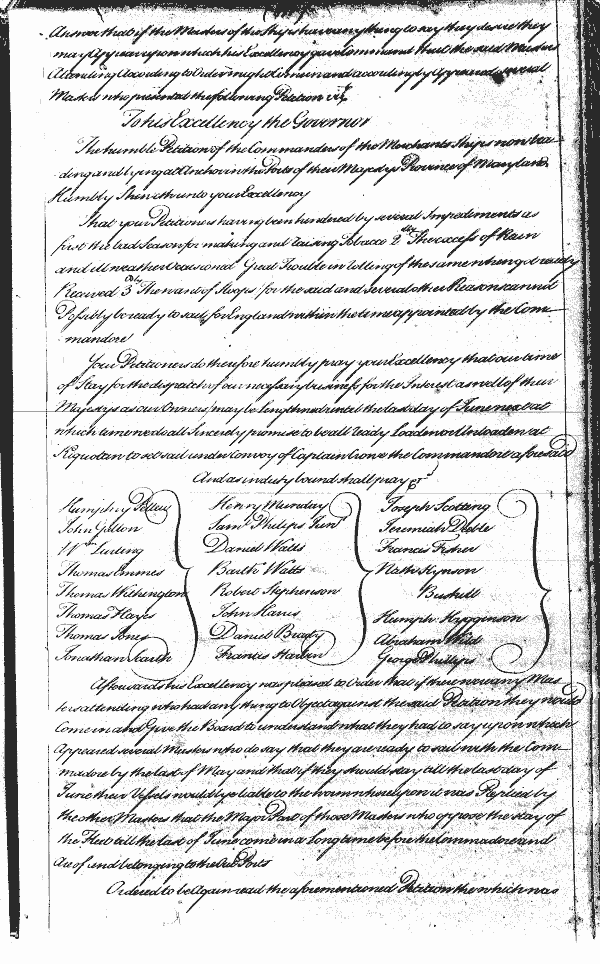 Answer that if the Masters of the Ships have any thing to say they desire they
may Appear upon which his Excellency gave Command that the said Masters
Attending According to Order might Come in and accordingly Appeared several
Masters who presented the following Petition vizt
To his Excellency the Governor
The humble Petition of the Commanders of the Merchants Ships now loa-
ding and lying at Anchor in the Ports of their Majestys Province of Maryland
Humbly Sheweth unto your Excellency
That your Petitioners having been hindered by several Impediments as
first the bad Season for making and Raising Tobacco 2dly The excess of Rain
and ill weather Occasioned Great Trouble in Rolling of the same when got ready
Received 3dly The want of Sloops for the said and several other Reasons cannot
Possibly be ready to sail for England within the time appointed by the Com-
mandore
Your Petitioners do therefore humbly pray your Excellency that our time
of Stay for the dispatch of our necessary business for the Interest as well of their
Majestys as our Owners may be lengthned until the last day of June next at
which time we do all Sincerely promise to be all ready Loaden or Unloaden at
Kiquotan to set sail under Convoy of Captain Crowe the Commandore aforesaid
And as in duty bound shall pray &ca
Humphry Pellew
John Gillon
Wm Luting
Thomas Emmes
Thomas Wilkington
Thomas Hayes
Thomas Jones
Jonathan Scarth
Henry Munday
Saml Philips Junr
Daniel Watts
Barth Watts
Robert Stephenson
John Harris
Daniel Brady
Francis Harbin
Joseph Scottang
Jeremiah Deeble
Francis Fisher
Nath Hynson
Bushill
Humph: Hygginson
Abraham Wild
George Phillips
Afterwards his Excellency was pleased to Order that if there were any Mas-
ters attending who had any thing to Object against the said Petition they would
Come in and Give the Board to understand what they had to say upon which
Appeared several Masters who do say that they are ready to sail with the Com-
madore by the last of May and that if they should stay till the last day of
June their Vessels would be liable to the worm whereupon it was Replied by
the other Masters that the Major Part of those Masters who oppose the stay of
the Fleet till the last of June came in a long time before the Commadore and
are of and belonging to the Out Ports
Ordered to be Again read the aforementioned Petition the which was